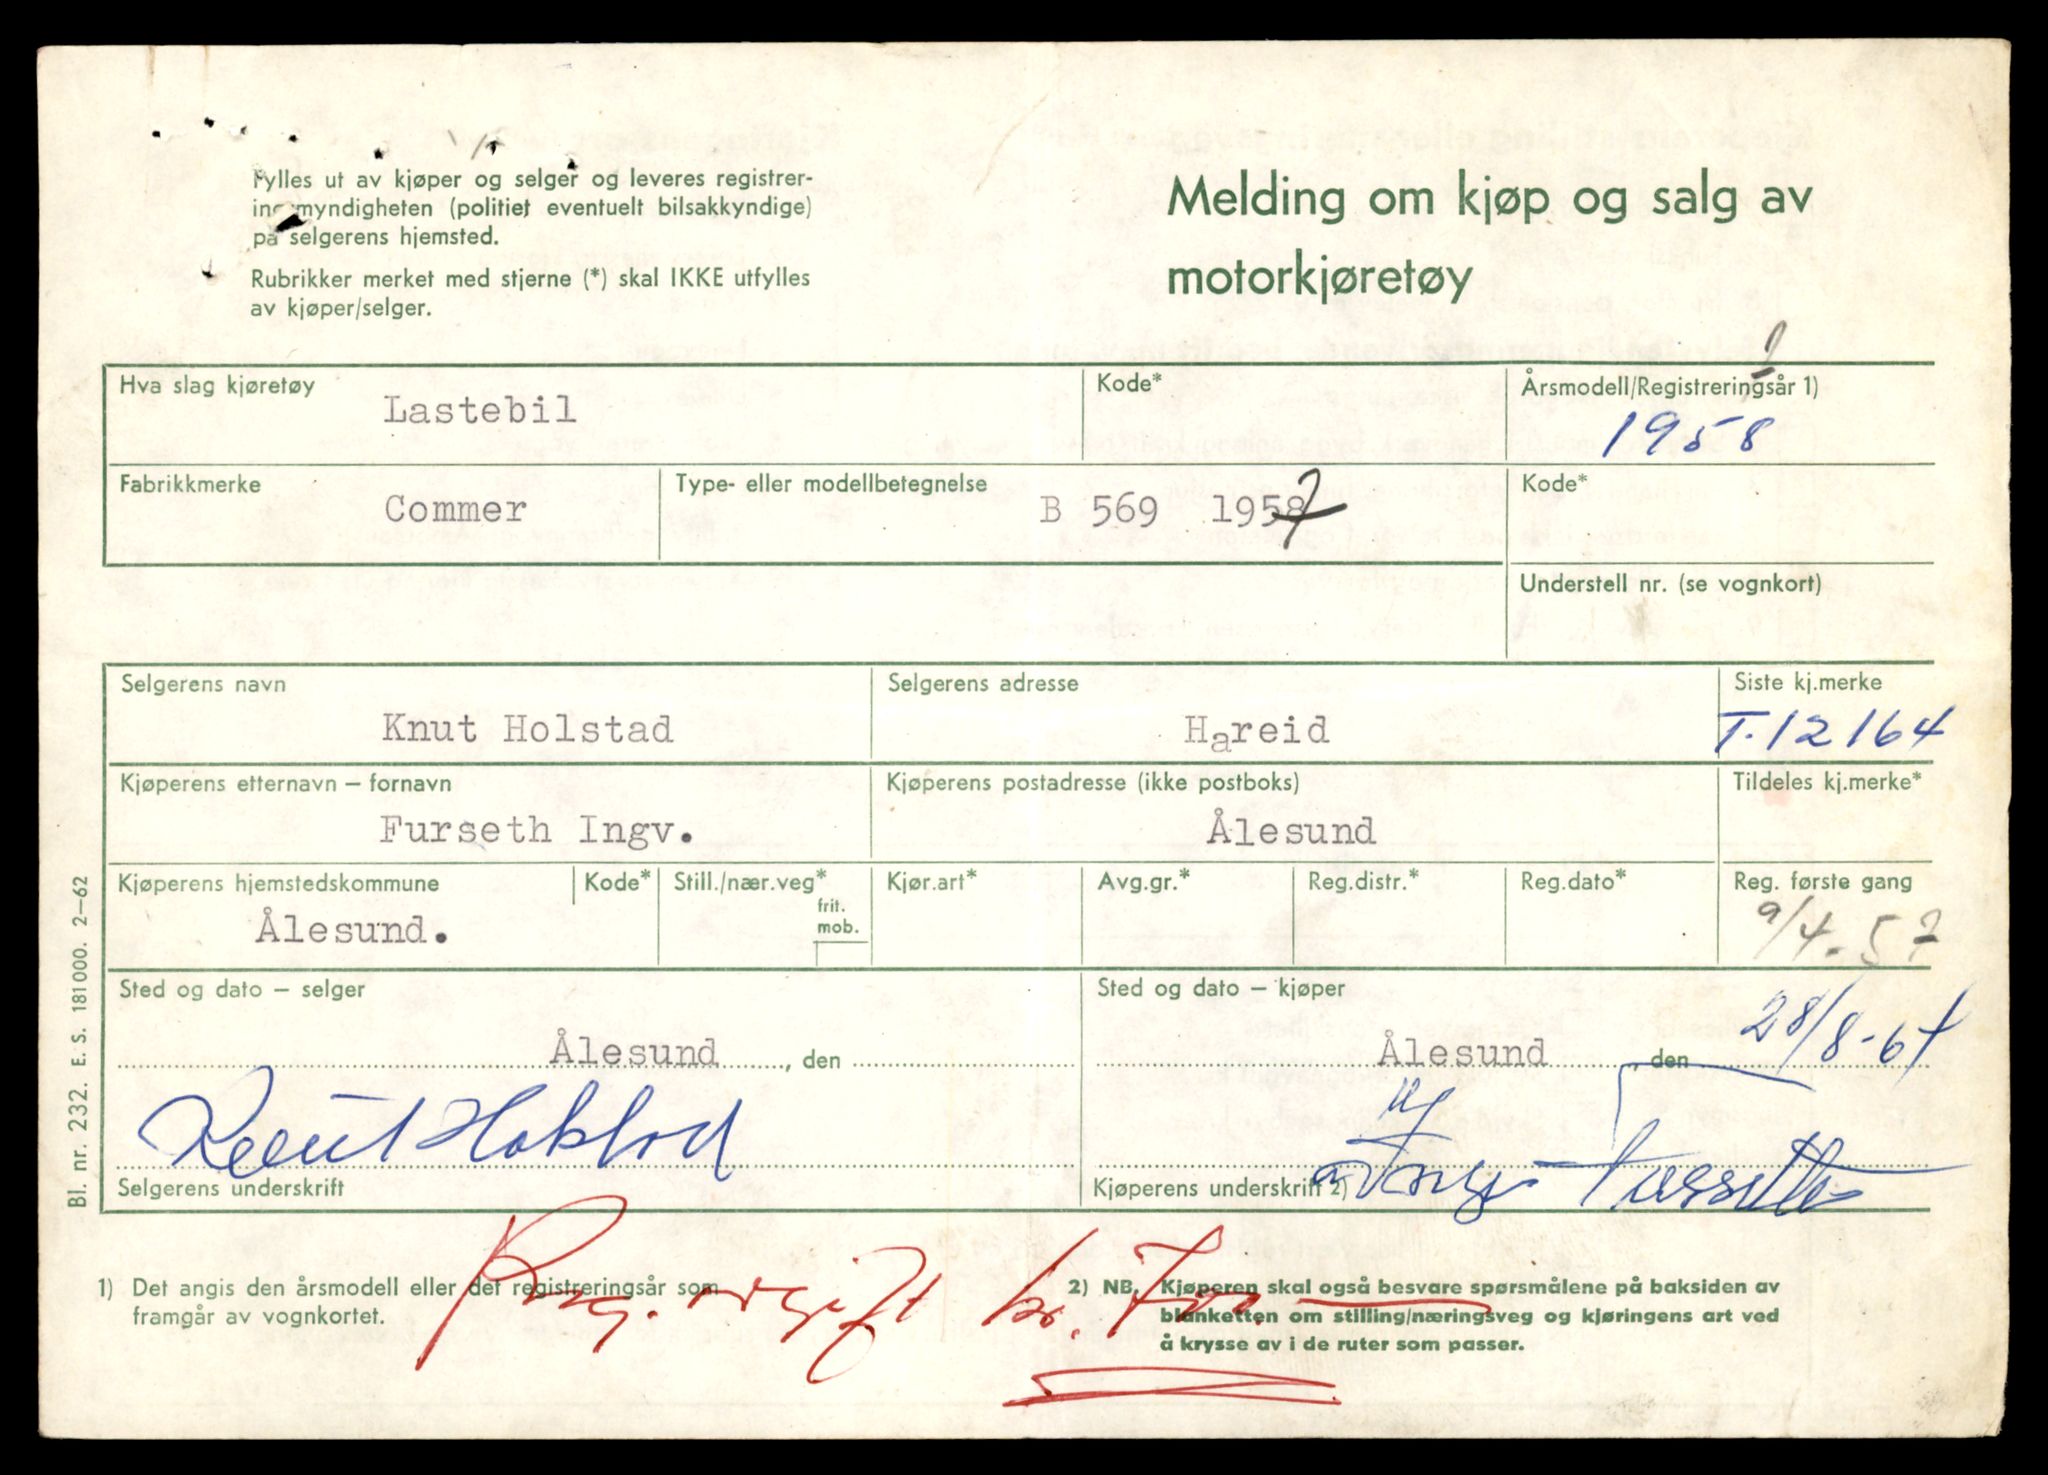 Fylles ut av kjøper og selger og leveres registrer-
ingsmyndigheten (politiet eventuelt bilsakkyndige)
på selgerens hjemsted.
Rubrikker merket med stjerne (*) skal IKKE utfylles
av kjøper/selger.
Melding om kjøp og salg av
motorkjøretøy
Hva slag kjøretøy
Lastebil
Kode*
Årsmodell/Registreringsår 1)
1958
Fabrikkmerke
Commer
Type- eller modellbetegnelse
B 569 1957
Kode*
Understell nr. (se vognkort)
Selgerens navn
Knut Holstad
Selgerens adresse
Hareid
Siste kj.merke
T.12164
Kjøperens etternavn – fornavn
Furseth Ingv.
Kjøperens postadresse (ikke postboks)
Ålesund
Tildeles kj.merke*
Kjøperens hjemstedskommune
Ålesund.
Kode*
Still./nær.veg*
frit.
mob.
Kjør.art*
Avg.gr.*
Reg.distr.*
Reg.dato*
Reg. første gang
9/4.57
Sted og dato – selger
Ålesund, den
Sted og dato – kjøper
Ålesund, den 28/8-64
Knut Holstad
Selgerens underskrift
Kjøperens underskrift 2)
Reg. avgift kr.
1) Det angis den årsmodell eller det registreringsår som
framgår av vognkortet.
2) NB. Kjøperen skal også besvare spørsmålene på baksiden av
blanketten om stilling/næringsveg og kjøringens art ved
å krysse av i de ruter som passer.
Bl. nr. 232. E. S. 181000. 2–62